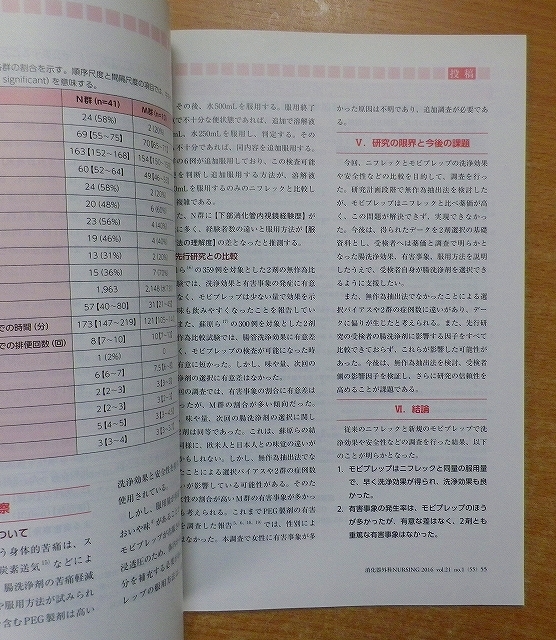 各群の割合を示す。順序尺度と間隔尺度の項目では、
significant) を意味する。
N群 (n=41)
24 (58%)
69【55~75】
163【152~168】
60【52~64】
24 (58%)
20 (48%)
23 (56%)
19 (46%)
13 (31%)
15 (36%)
1,963
57【40~80】
での時間 (分) 173【147~219】
での排便回数 (回) 8【7~10】
1 (2%)
6【6~7】
2【2~3】
2【2~3】
5【4~5】
3【3~4】
M群
2 (20%)
2 (20%)
6 (60%)
4 (40%)
4 (40%)
2 (20%)
7 (70%)
0
察
ついて
う身体的苦痛は、ス
炭素送気15)などによ
、腸洗浄剤の苦痛軽減
や服用方法が試みられ
を含むPEG製剤は高い
洗浄効果と安全性を
使用されている。
しかし、服用量の
おいや味が
モビプレップが
浸透圧のため、
分を補充する必要
レップの服用方
投稿
その後、水500mLを服用する。服用終了
で不十分な便状態であれば、追加で溶解液
L、水250mLを服用し、判定する。その
不十分であれば、同内容を追加服用する。
の6例が追加服用しており、この検査可能
を判断し追加服用する方法が、溶解液
0mLを服用するのみのニフレックと比較し
複雑である。
た、N群に【下部消化管内視鏡経験歴】が
に多く、経験者数の違いと服用方法が【服
法の理解度】の差となったと推測する。
先行研究との比較
の359例を対象とした2剤の無作為比
験では、洗浄効果と有害事象の発症に有意
なく、モビプレップは少ない量で効果を示
味も飲みやすくなったことを報告してい
また、蘇原ら17)の300例を対象とした2剤
作為比較試験では、腸管洗浄効果に有意差
く、モビプレップの検査が可能になった時
有意に短かった。しかし、味や量、次回の
浄剤の選択に有意差はなかった。
回の調査では、有害事象の割合に有意差は
ったが、M群の割合が多い傾向だった。
、味や量、次回の腸洗浄剤の選択に関し
群は同等であった。これは、蘇原らの結
同様に、欧米人と日本人との味覚の違いが
かもしれない。しかし、無作為抽出でな
たことによる選択バイアスや2群の症例数
いが影響している可能性がある。そのた
女性の割合が高いM群の有害事象が多かっ
も考えられる。これまでPEG製剤の有害
を調査した報告では、性別によ
なかった。本調査で女性に有害事象が多
かった原因は不明であり、追加調査が必要であ
る。
Ⅴ．研究の限界と今後の課題
今回、ニフレックとモビプレップの洗浄効果
や安全性などの比較を目的として、調査を行っ
た。研究計画段階で無作為抽出法を検討した
が、モビプレップはニフレックと比べ薬価が高
く、この問題が解決できず、実現できなかっ
た。今後は、得られたデータを2剤選択の基礎
資料とし、受検者へは薬価と調査で明らかと
なった腸洗浄効果、有害事象、服用方法を説明
したうえで、受検者自身が腸洗浄剤を選択でき
るように支援したい。
また、無作為抽出法でなかったことによる選
択バイアスや2群の症例数に違いがあり、デー
タに偏りが生じたと考えられる。また、先行研
究の受検者の腸洗浄剤に影響する因子をすべて
比較できておらず、これらが影響した可能性が
あった。今後は、無作為抽出法を検討、受検者
側の影響因子を検証し、さらに研究の信頼性を
高めることが課題である。
Ⅵ．結論
従来のニフレックと新規のモビプレップで洗
浄効果や安全性などの調査を行った結果、以下
のことが明らかとなった。
1．モビプレップはニフレックと同量の服用量
で、早く洗浄効果が得られ、洗浄効果も良
かった。
2．有害事象の発生率は、モビプレップのほう
が多かったが、有意な差はなく、2剤とも
重篤な有害事象はなかった。
消化器外科NURSING 2016 vol.21 no.1 (55) 55